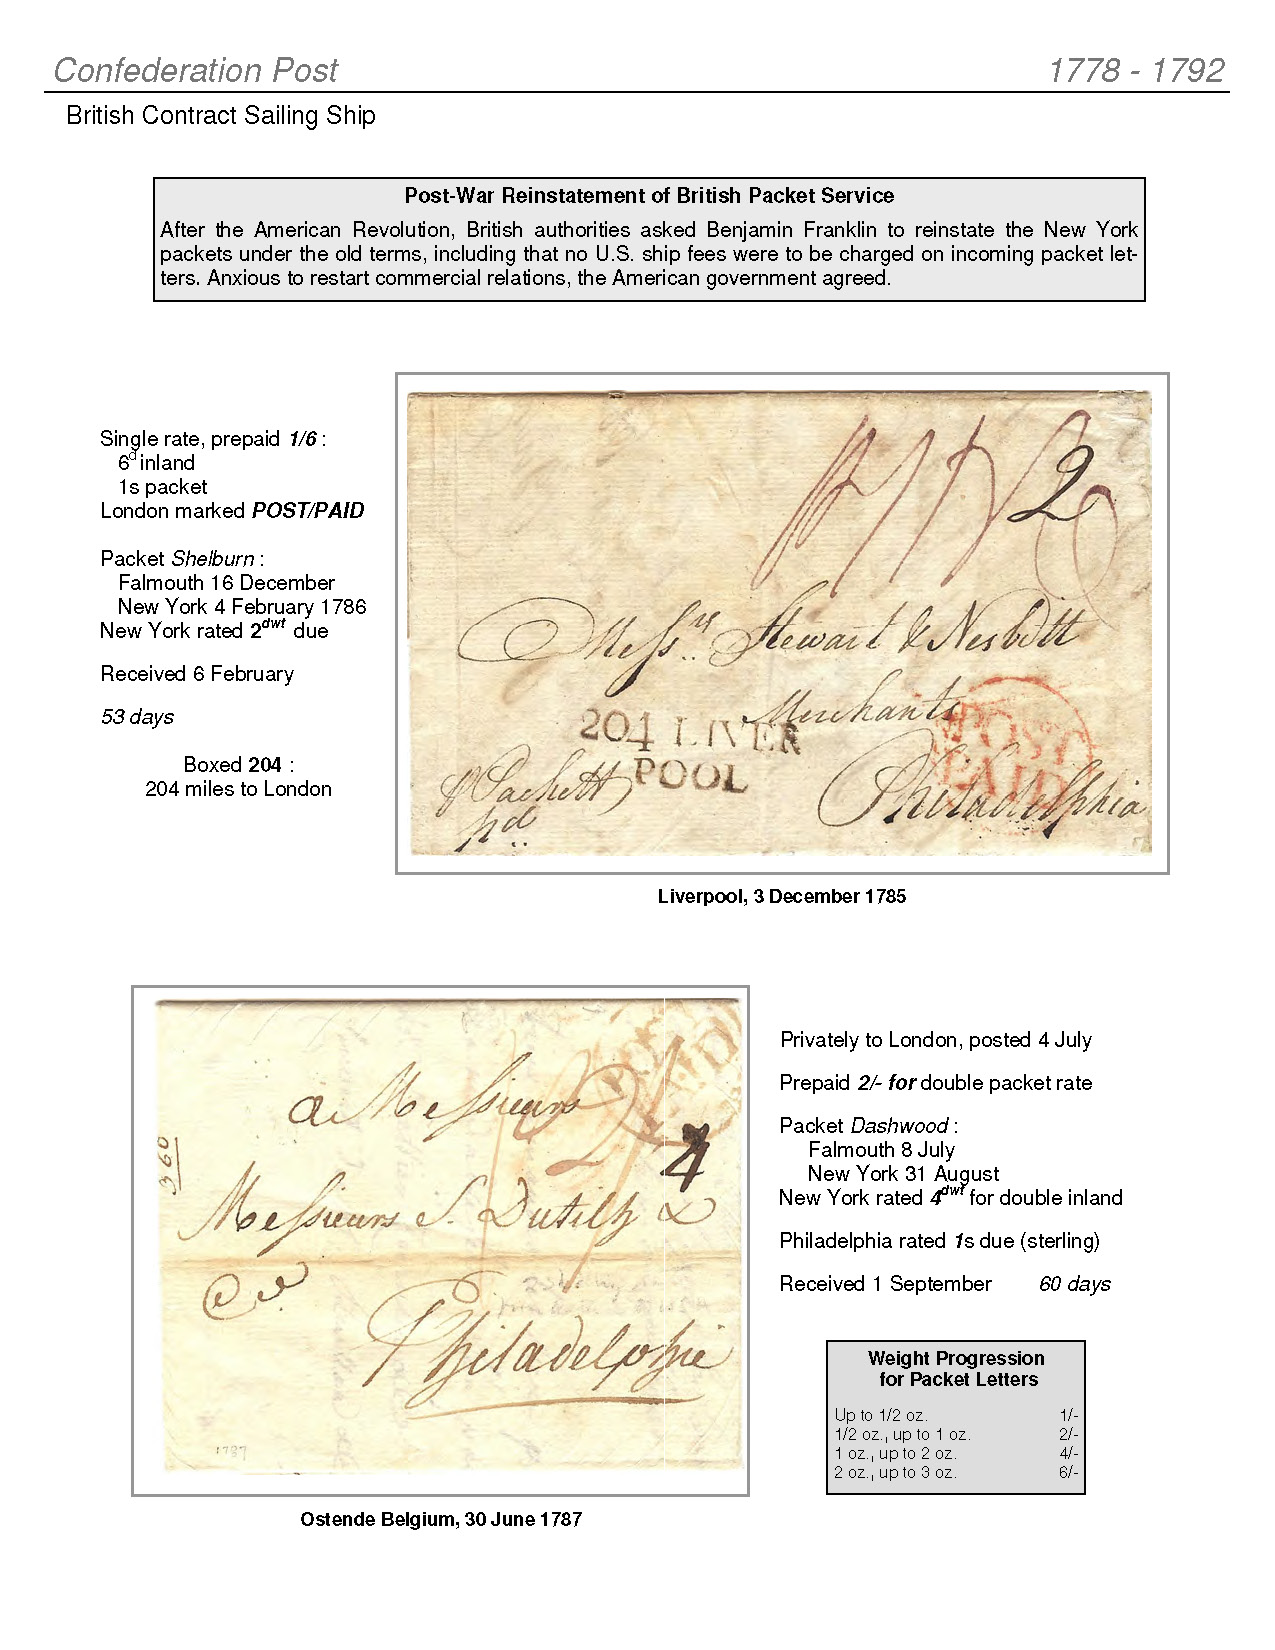 Confederation Post 1778 - 1792
British Contract Sailing Ship
Post-War Reinstatement of British Packet Service
After the American Revolution, British authorities asked Benjamin Franklin to reinstate the New York
packets under the old terms, including that no U.S. ship fees were to be charged on incoming packet let-
ters. Anxious to restart commercial relations, the American government agreed.
Single rate, prepaid 1/6 :
6d inland
1s packet
London marked POST/PAID
Packet Shelburn :
Falmouth 16 December
New York 4 February 1786
New York rated 2dwt due
Received 6 February
53 days
Boxed 204 :
204 miles to London
2
Messrs Stewart & Nesbitt
Merchants
204 LIVER
POOL
POST
PAID
p Packett
pd
Philadelphia
Liverpool, 3 December 1785
a Messieurs
4
360
Messieurs S. Dutilh &
Philadelphie
1787
Ostende Belgium, 30 June 1787
Privately to London, posted 4 July
Prepaid 2/- for double packet rate
Packet Dashwood :
Falmouth 8 July
New York 31 August
New York rated 4dwt for double inland
Philadelphia rated 1s due (sterling)
Received 1 September 60 days
Weight Progression
for Packet Letters
Up to 1/2 oz. 1/-
1/2 oz., up to 1 oz. 2/-
1 oz., up to 2 oz. 4/-
2 oz., up to 3 oz. 6/-